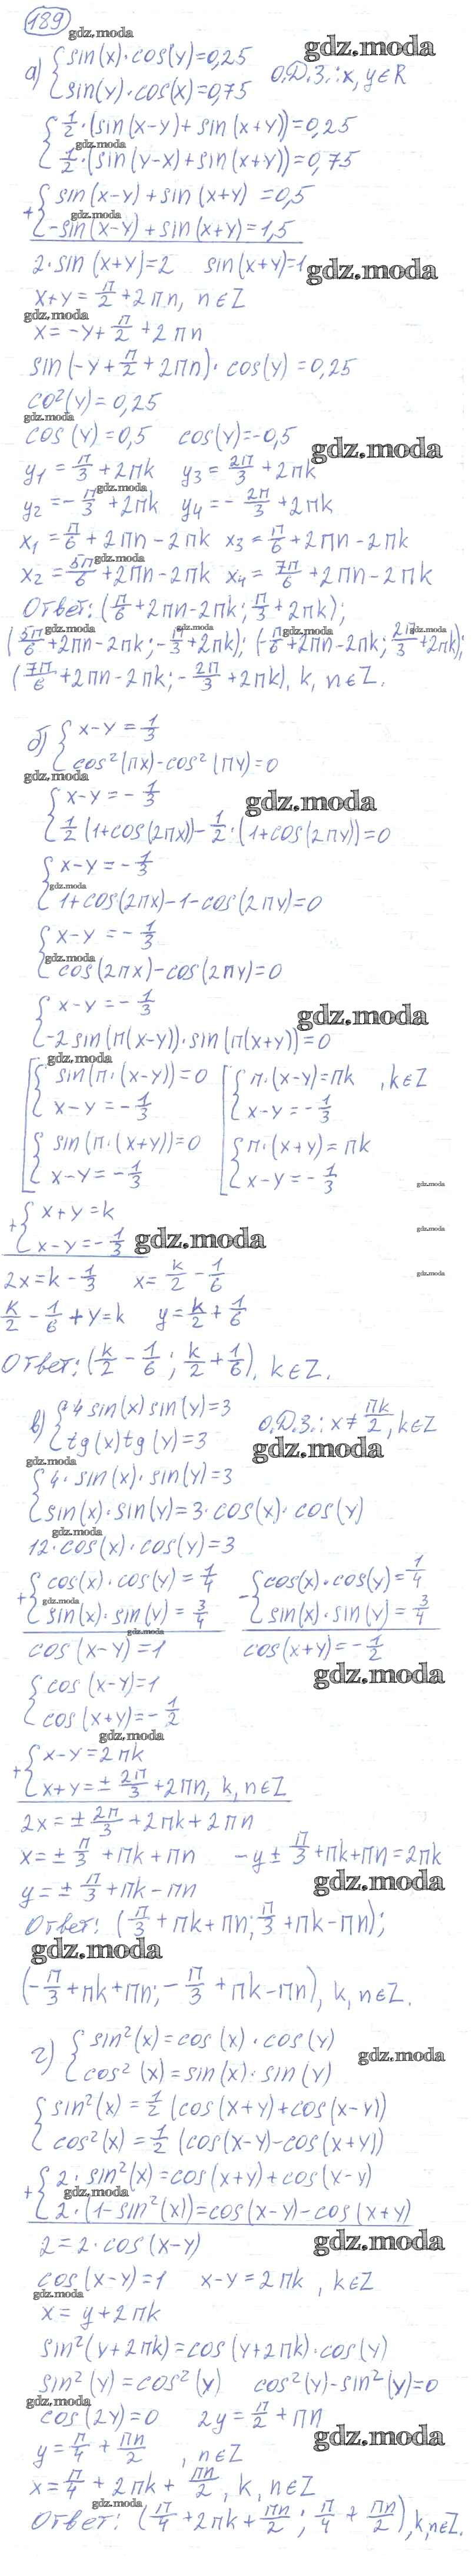 189
gdz.moda
а) { sin(x)·cos(y)=0,25
gdz.moda
sin(y)·cos(x)=0,75 О.Д.З.: x,y∈R
{ 1/2·(sin(x-y)+sin(x+y))=0,25
gdz.moda
1/2·(sin(y-x)+sin(x+y))=0,75
+{ sin(x-y)+sin(x+y)=0,5
gdz.moda
-sin(x-y)+sin(x+y)=1,5
2·sin(x+y)=2 sin(x+y)=1
gdz.moda
x+y=π/2+2πn, n∈Z
gdz.moda
x=-y+π/2+2πn
sin(-y+π/2+2πn)·cos(y)=0,25
co²(y)=0,25
gdz.moda
cos(y)=0,5 cos(y)=-0,5
gdz.moda
y₁=π/3+2πk y₃=2π/3+2πk
gdz.moda
y₂=-π/3+2πk y₄=-2π/3+2πk
x₁=π/6+2πn-2πk x₃=π/6+2πn-2πk
gdz.moda
x₂=5π/6+2πn-2πk x₄=7π/6+2πn-2πk
Ответ: (π/6+2πn-2πk; π/3+2πk);
gdz.moda gdz.moda gdz.moda gdz.moda
(5π/6+2πn-2πk; -π/3+2πk); (-π/6+2πn-2πk; 2π/3+2πk);
(7π/6+2πn-2πk; -2π/3+2πk), k, n∈Z.
б) { x-y=1/3
cos²(πx)-cos²(πy)=0
gdz.moda
{ x-y=-1/3
gdz.moda
1/2(1+cos(2πx))-1/2·(1+cos(2πy))=0
{ x-y=-1/3
gdz.moda
1+cos(2πx)-1-cos(2πy)=0
{ x-y=-1/3
gdz.moda
cos(2πx)-cos(2πy)=0
{ x-y=-1/3
gdz.moda
-2sin(π(x-y))·sin(π(x+y))=0
gdz.moda
[ { sin(π·(x-y))=0 [ { π·(x-y)=πk , k∈Z
x-y=-1/3 x-y=-1/3
{ sin(π·(x+y))=0 { π·(x+y)=πk
x-y=-1/3 x-y=-1/3
gdz.moda
+{ x+y=k
gdz.moda
x-y=-1/3
gdz.moda
2x=k-1/3 x=k/2-1/6
gdz.moda
k/2-1/6+y=k y=k/2+1/6
Ответ: (k/2-1/6; k/2+1/6), k∈Z.
в) { 4sin(x)sin(y)=3
tg(x)tg(y)=3 О.Д.З.: x≠πk/2, k∈Z
gdz.moda
gdz.moda
{ 4·sin(x)·sin(y)=3
sin(x)·sin(y)=3·cos(x)·cos(y)
gdz.moda
12·cos(x)·cos(y)=3
+{ cos(x)·cos(y)=1/4 -{ cos(x)·cos(y)=1/4
gdz.moda
sin(x)·sin(y)=3/4 sin(x)·sin(y)=3/4
gdz.moda
cos(x-y)=1 cos(x+y)=-1/2
gdz.moda
{ cos(x-y)=1
cos(x+y)=-1/2
gdz.moda
+{ x-y=2πk
x+y=±2π/3+2πn, k,n∈Z
2x=±2π/3+2πk+2πn
x=±π/3+πk+πn -y±π/3+πk+πn=2πk
gdz.moda
y=±π/3+πk-πn
Ответ: (π/3+πk+πn; π/3+πk-πn);
gdz.moda
(-π/3+πk+πn; -π/3+πk-πn), k, n∈Z.
г) { sin²(x)=cos(x)·cos(y)
gdz.moda
cos²(x)=sin(x)·sin(y)
{ sin²(x)=1/2(cos(x+y)+cos(x-y))
cos²(x)=1/2(cos(x-y)-cos(x+y))
+{ 2·sin²(x)=cos(x+y)+cos(x-y)
gdz.moda
2·(1-sin²(x))=cos(x-y)-cos(x+y)
2=2·cos(x-y)
gdz.moda
cos(x-y)=1 x-y=2πk, k∈Z
gdz.moda
x=y+2πk
sin²(y+2πk)=cos(y+2πk)·cos(y)
sin²(y)=cos²(y) cos²(y)-sin²(y)=0
gdz.moda
cos(2y)=0 2y=π/2+πn
gdz.moda
y=π/4+πn/2, n∈Z
x=π/4+2πk+πn/2, k, n∈Z
gdz.moda
Ответ: (π/4+2πk+πn/2; π/4+πn/2), k,n∈Z.